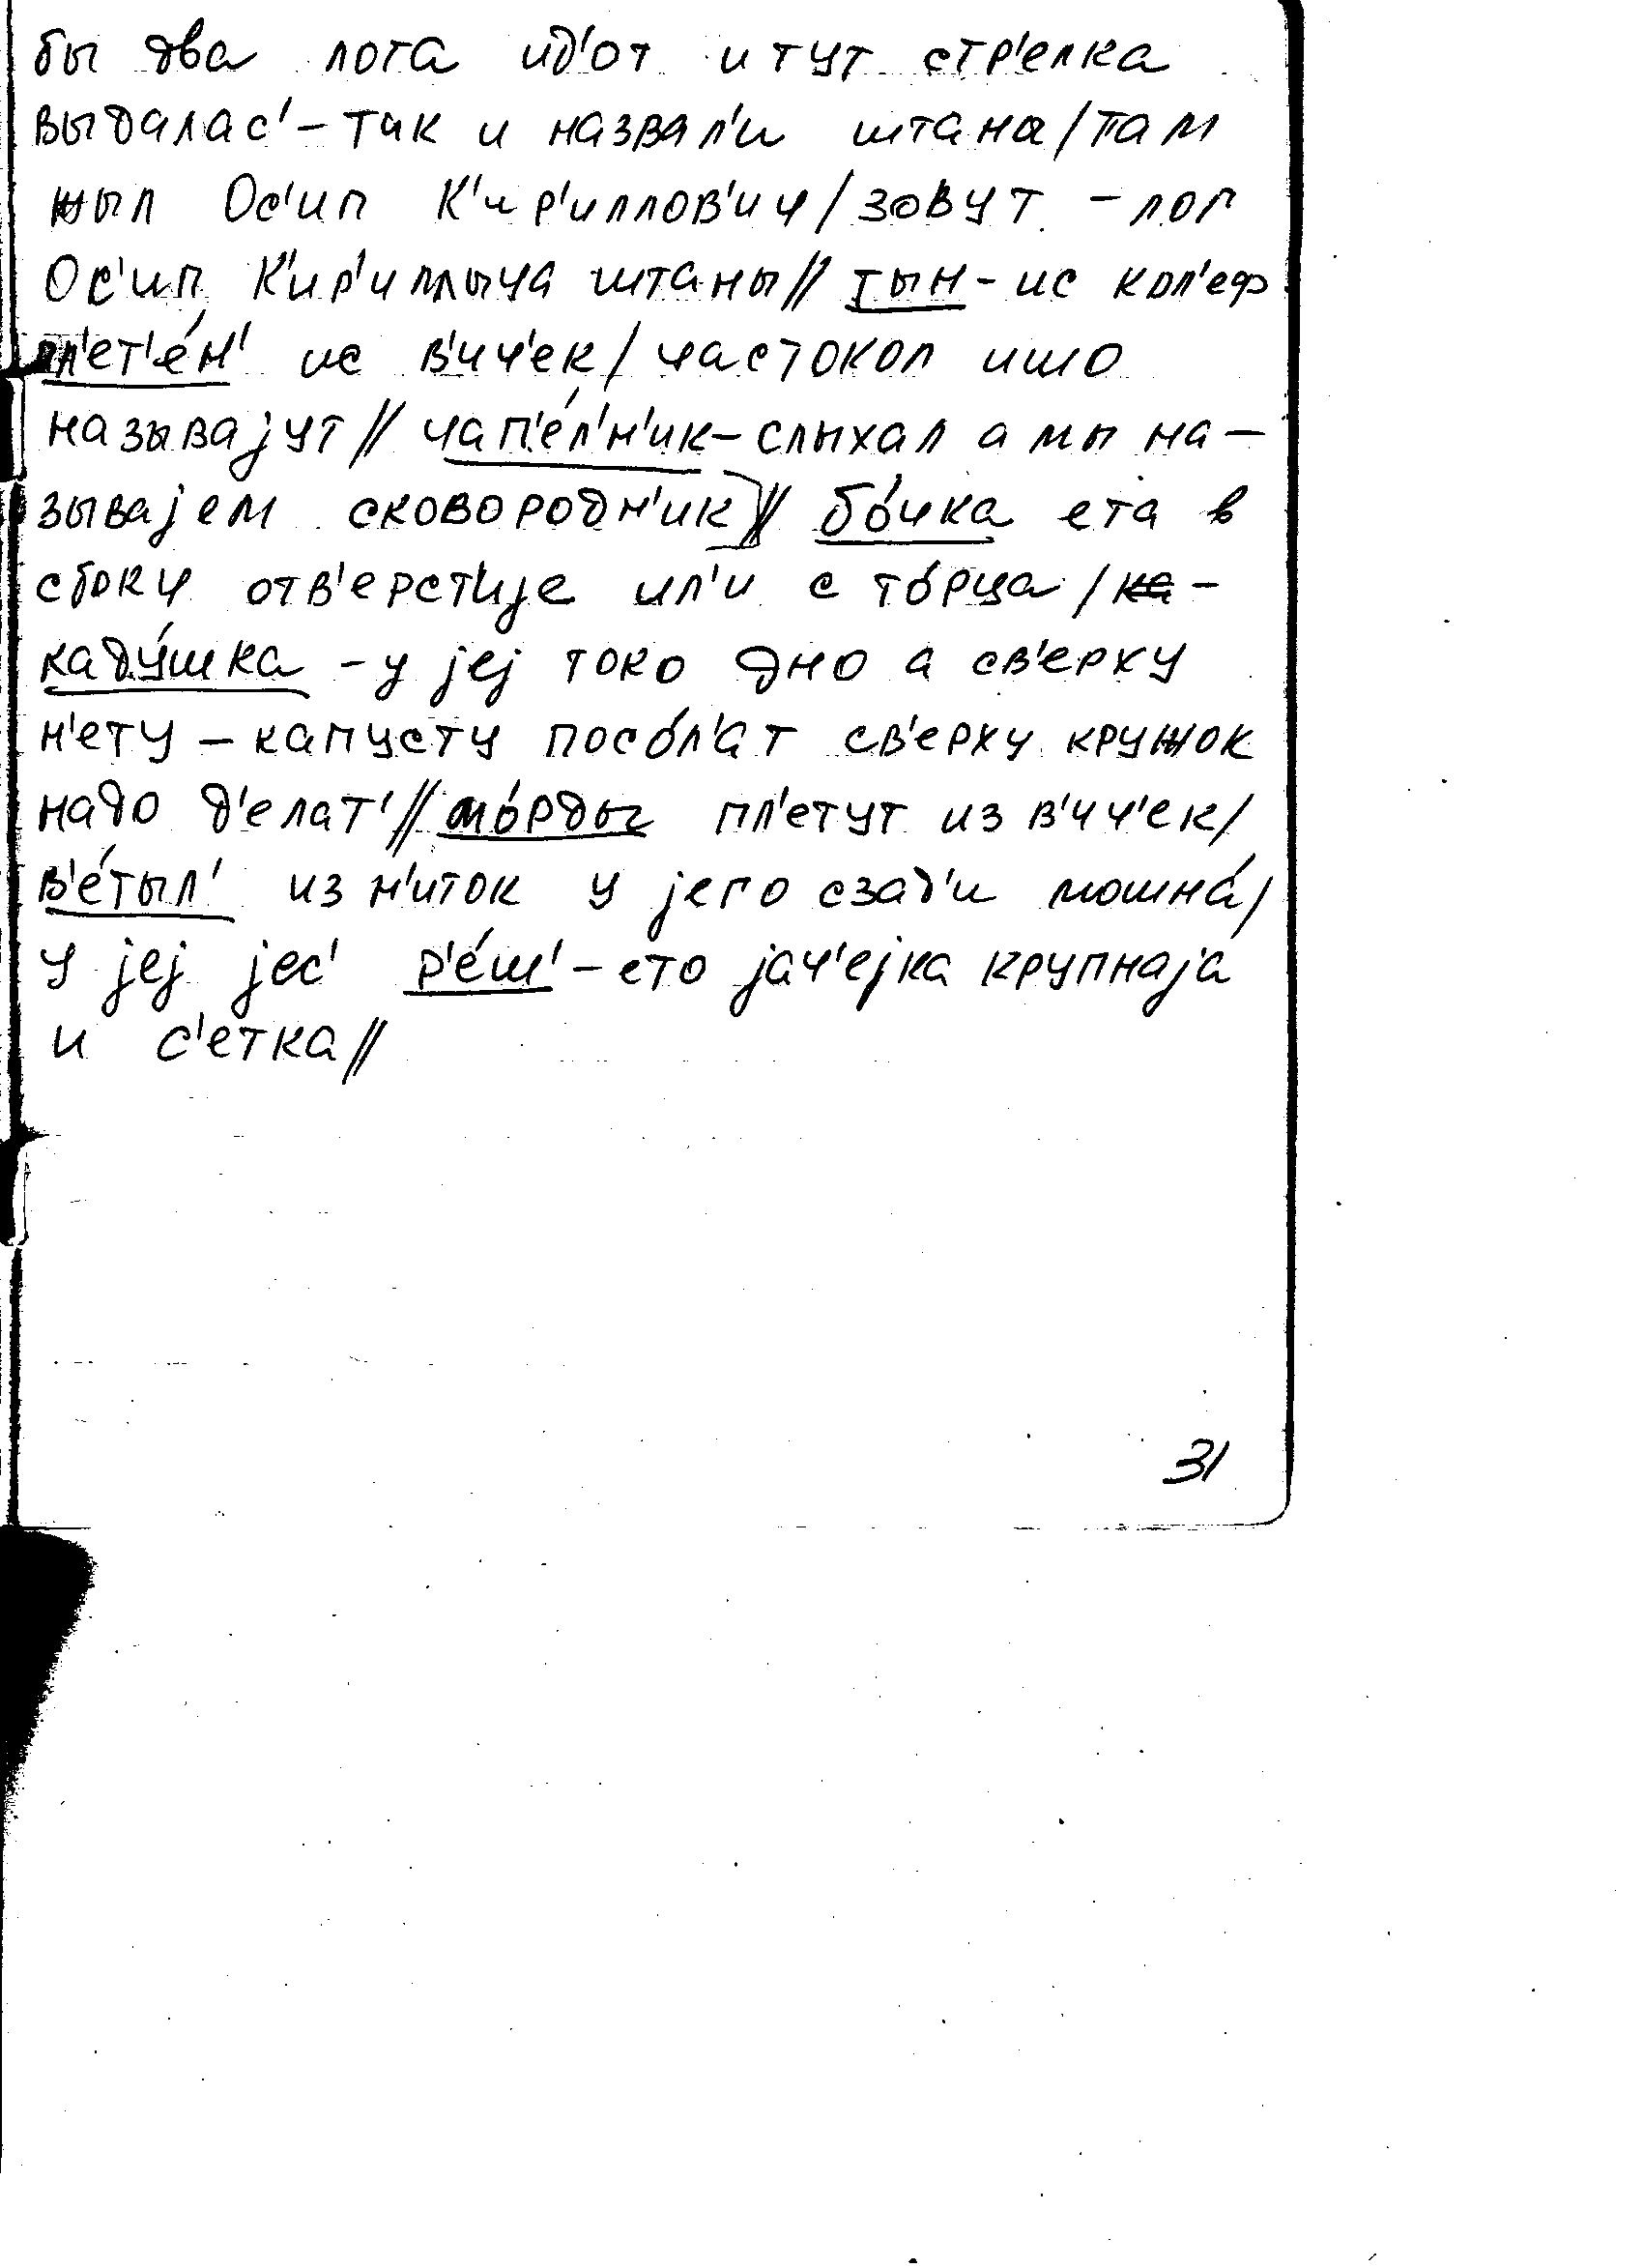 бы два лога ид'от и тут стр'елка
выдалас' – так и назвал'и штана/там
жыл Ос'ип К'ир'иллов'ич/зовут – лог
Ос'ип К'ир'иллыча штаны// тын – ис кол'еф
пл'ет'е́н' ис в'ич'ек/частокол ишо
называjут// чап'е́л'н'ик – слыхал а мы на–
зываjем сковородн'ик// бо́чка ета в
сбоку отв'ерст'иjе ил'и с то́рца/ка–
каду́шка – у jеj токо дно а св'ерху
н'ету – капусту посо́л'ат св'ерху кружок
надо д'елат'// мо́рды пл'етут из в'ич'ек/
в'е́тыл' из н'иток у jего сзад'и мошна́/
у jеj jес' р'е́ш' – ето jач'еjка крупнаjа
и с'етка//
31